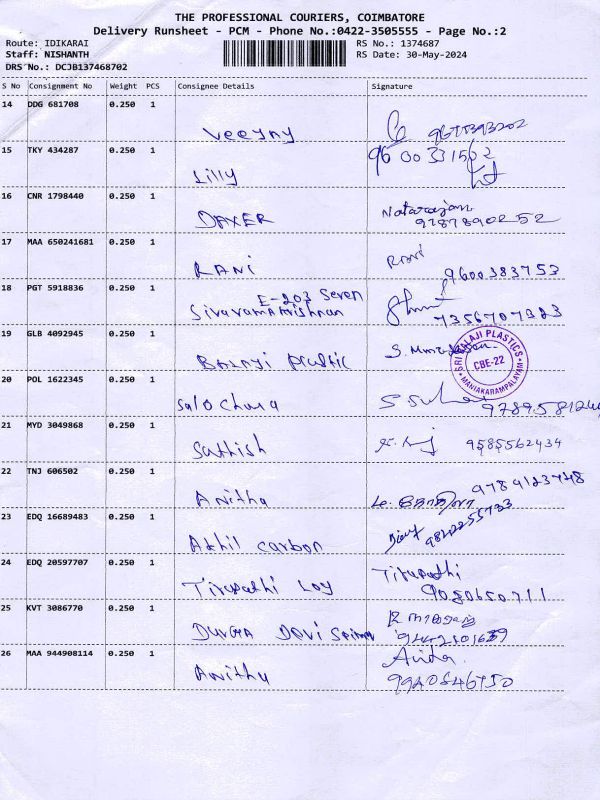 THE PROFESSIONAL COURIERS, COIMBATORE
Delivery Runsheet - PCM - Phone No.:0422-3505555 - Page No.:2
Route: IDIKARAI RS No.: 1374687
Staff: NISHANTH RS Date: 30-May-2024
DRS No.: DCJB137468702
S No Consignment No Weight PCS Consignee Details Signature
14 DDG 681708 0.250 1
15 TKY 434287 0.250 1 96 00331502
Lilly
16 CNR 1798440 0.250 1 Natarajan
DAXER 9787890252
17 MAA 650241681 0.250 1 Rani
RANI 9600383753
18 PGT 5918836 0.250 1 E-203 Seven
Sivaramakrishnan 7356707323
19 GLB 4092945 0.250 1
Balaji Plastic
SRI BALAJI PLASTICS
CBE-22
MANIAKARAMPALAYAM
20 POL 1622345 0.250 1
Sulochana
21 MYD 3049868 0.250 1
Sathish 9585562434
22 TNJ 606502 0.250 1 9789123748
Anitha
23 EDQ 16689483 0.250 1
Akhil carbon
24 EDQ 20597707 0.250 1 Tirupathi
Tirupathi Loy 9080650711
25 KVT 3086770 0.250 1
DURGA DEVI
26 MAA 944908114 0.250 1
Anitha